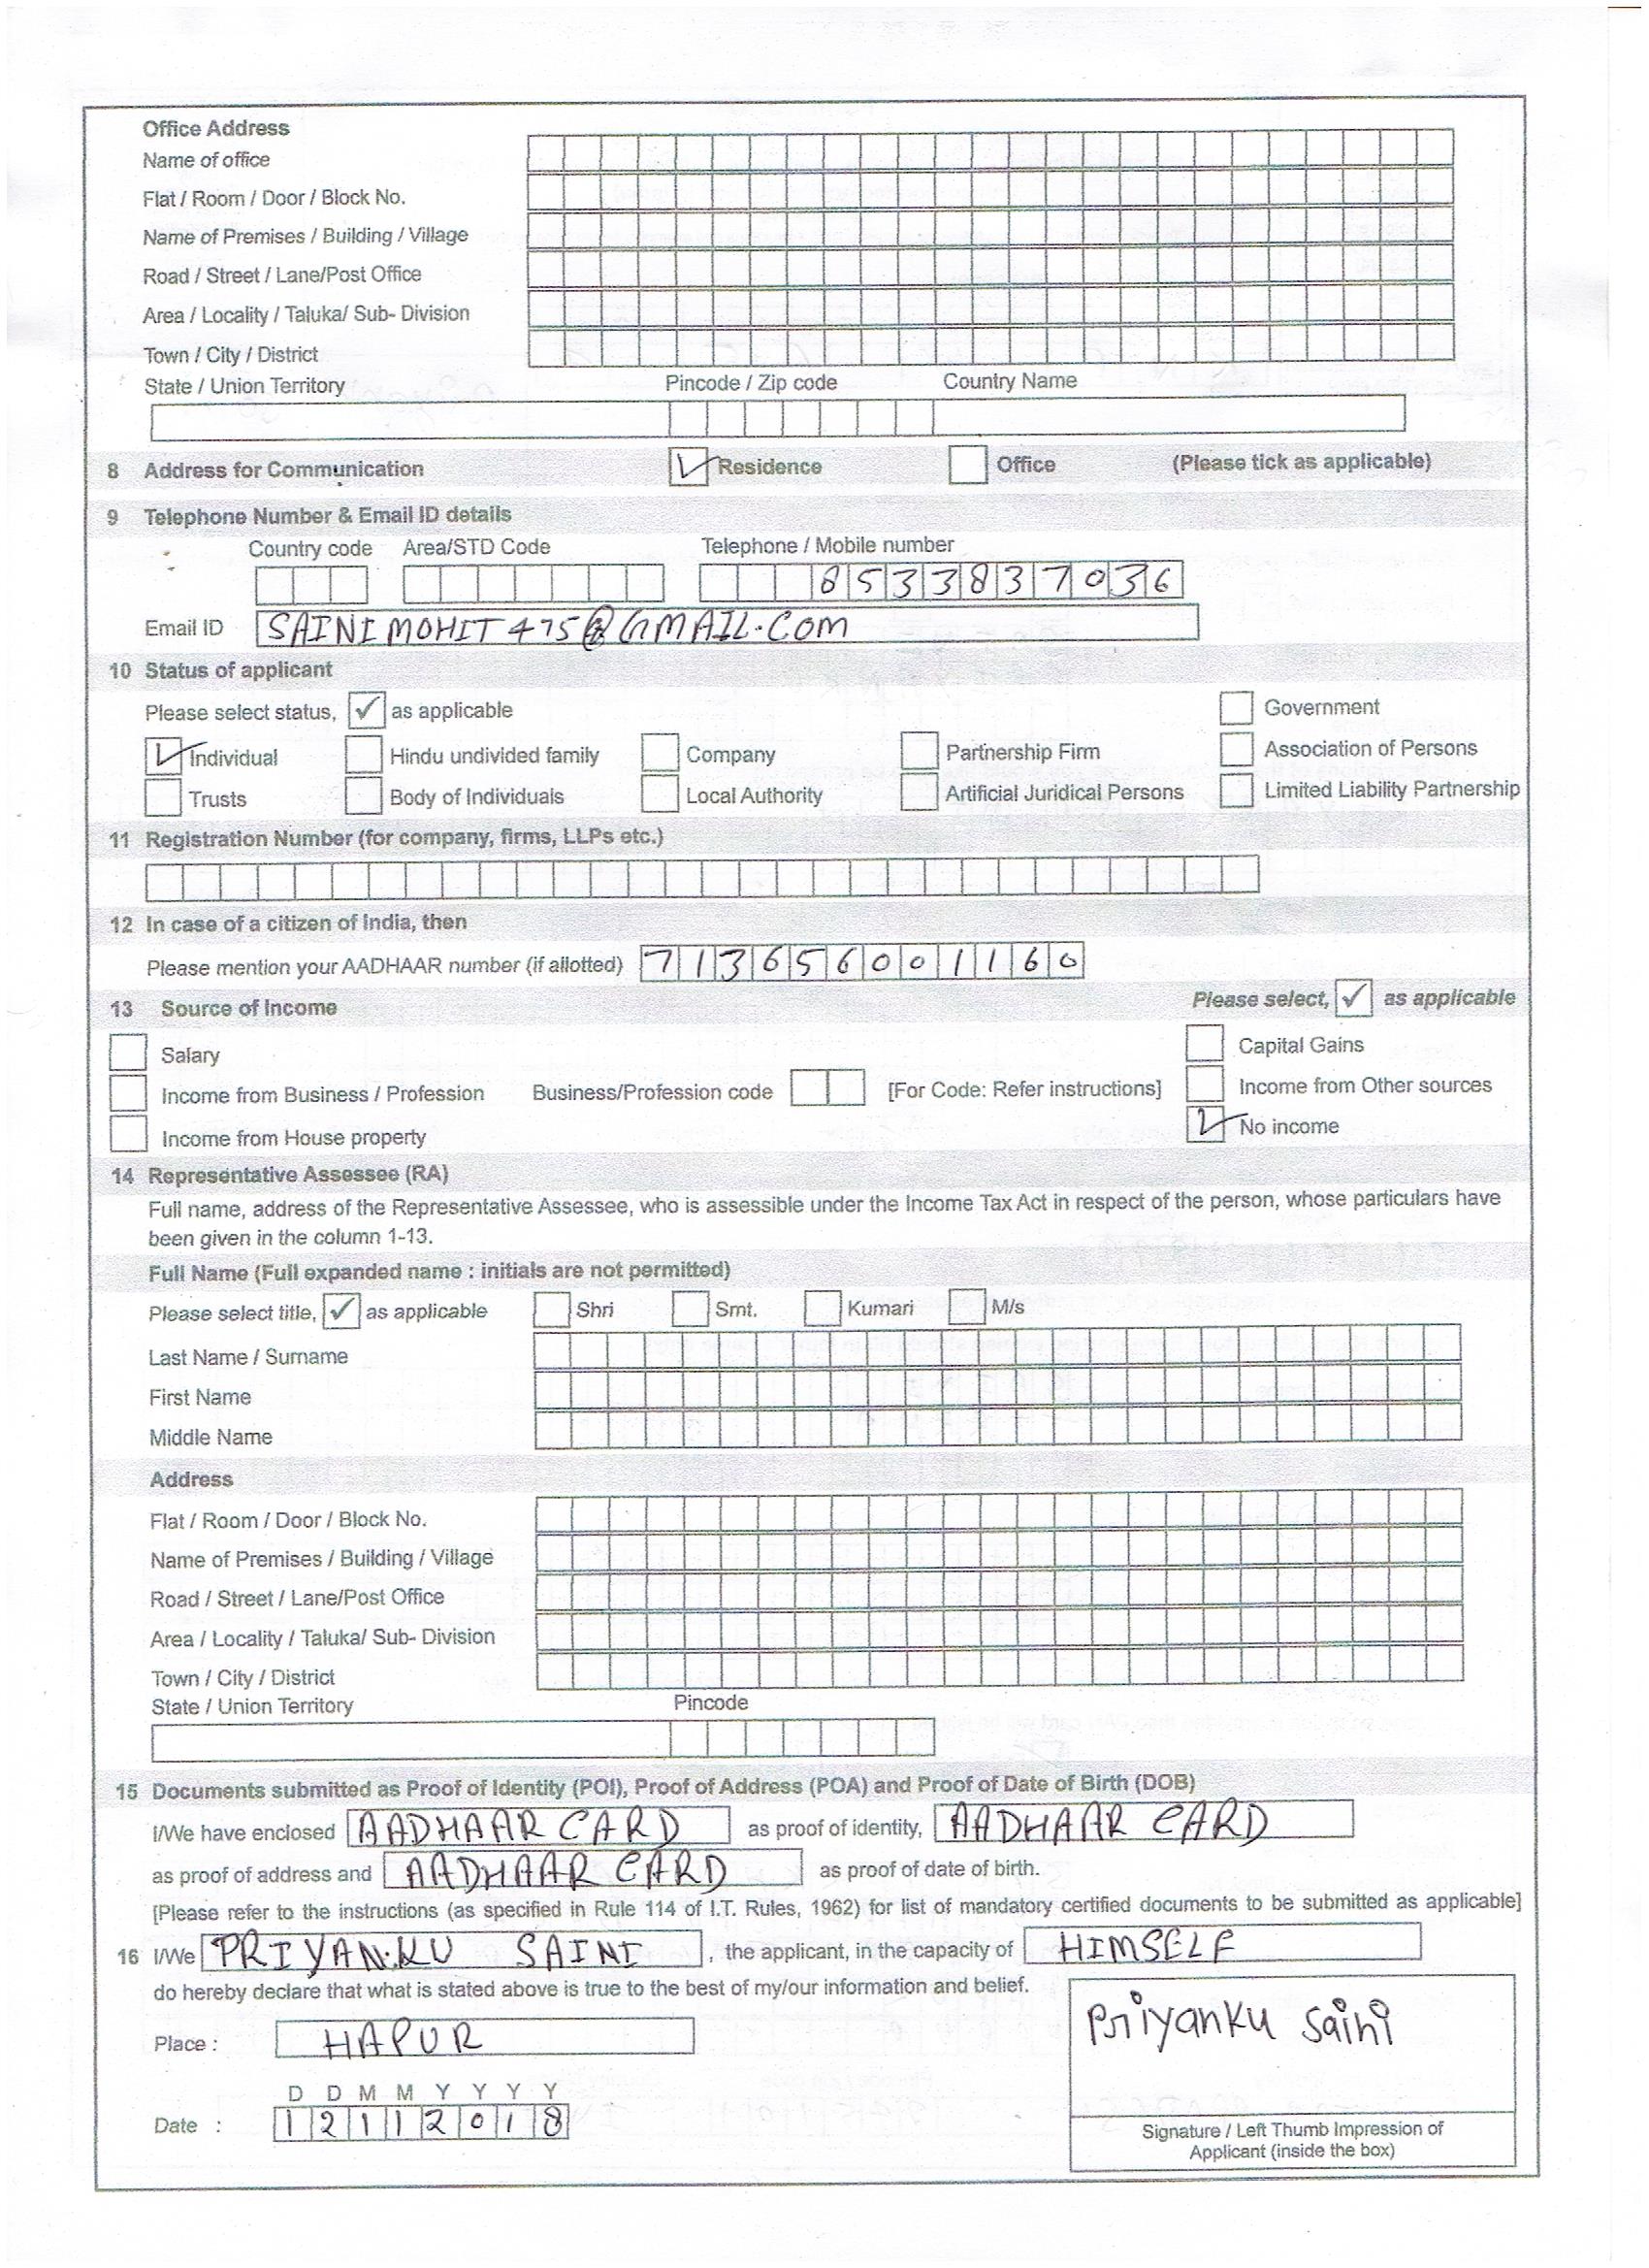 Office Address
Name of office
Flat / Room / Door / Block No.
Name of Premises / Building / Village
Road / Street / Lane/Post Office
Area / Locality / Taluka/ Sub- Division
Town / City / District
State / Union Territory Pincode / Zip code Country Name
8 Address for Communication Residence Office (Please tick as applicable)
9 Telephone Number & Email ID details
Country code Area/STD Code Telephone / Mobile number
8533837036
Email ID SAINIMOHIT475@GMAIL.COM
10 Status of applicant
Please select status, ✓ as applicable Government
Individual Hindu undivided family Company Partnership Firm Association of Persons
Trusts Body of Individuals Local Authority Artificial Juridical Persons Limited Liability Partnership
11 Registration Number (for company, firms, LLPs etc.)
12 In case of a citizen of India, then
Please mention your AADHAAR number (if allotted) 713656001160
13 Source of Income Please select, ✓ as applicable
Salary Capital Gains
Income from Business / Profession Business/Profession code [For Code: Refer instructions] Income from Other sources
Income from House property No income
14 Representative Assessee (RA)
Full name, address of the Representative Assessee, who is assessible under the Income Tax Act in respect of the person, whose particulars have
been given in the column 1-13.
Full Name (Full expanded name : initials are not permitted)
Please select title, ✓ as applicable Shri Smt. Kumari M/s
Last Name / Surname
First Name
Middle Name
Address
Flat / Room / Door / Block No.
Name of Premises / Building / Village
Road / Street / Lane/Post Office
Area / Locality / Taluka/ Sub- Division
Town / City / District
State / Union Territory Pincode
15 Documents submitted as Proof of Identity (POI), Proof of Address (POA) and Proof of Date of Birth (DOB)
I/We have enclosed AADHAAR CARD as proof of identity, AADHAAR CARD
as proof of address and AADHAAR CARD as proof of date of birth.
[Please refer to the instructions (as specified in Rule 114 of I.T. Rules, 1962) for list of mandatory certified documents to be submitted as applicable]
16 I/We PRIYANKU SAINI , the applicant, in the capacity of HIMSELF
do hereby declare that what is stated above is true to the best of my/our information and belief.
Priyanku Saini
Place : HAPUR
D D M M Y Y Y Y
Date : 12112018
Signature / Left Thumb Impression of
Applicant (inside the box)